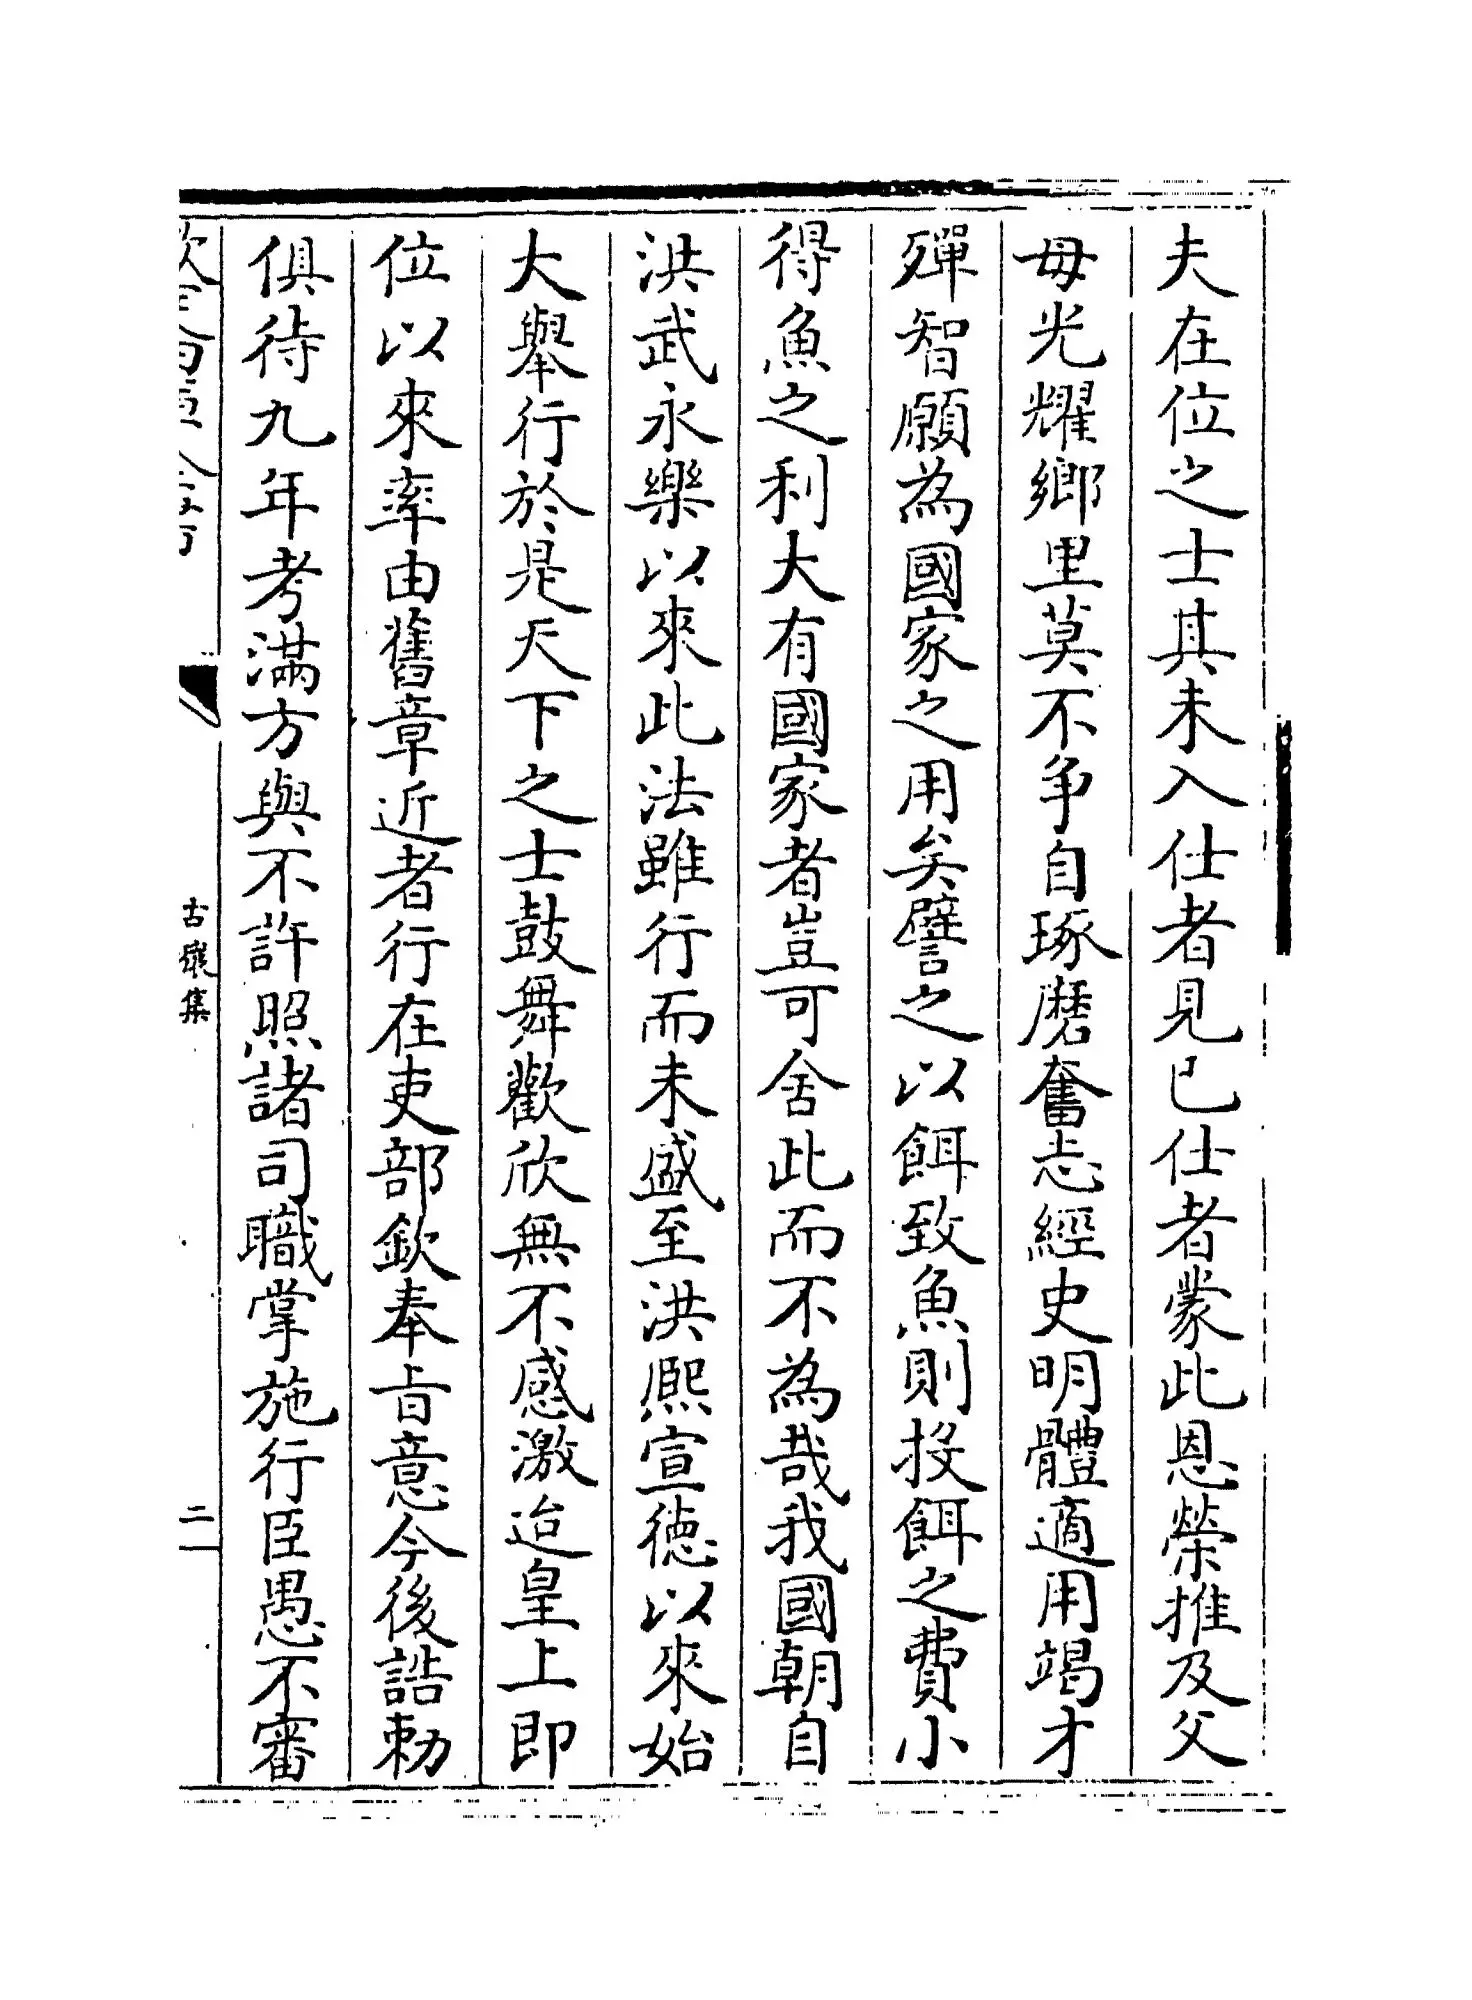 夫在位之士其未入仕者見已仕者蒙此恩榮推及父
母光耀鄉里莫不争自琢磨奮志經史明體適用竭才
殫智願為國家之用矣譬之以餌致魚則投餌之費小
得魚之利大有國家者豈可舍此而不為哉我國朝自
洪武永樂以來此法雖行而未盛至洪熈宣徳以來始
大舉行於是天下之士鼓舞歡欣無不感激迨皇上即
位以來率由舊章近者行在吏部欽奉㫖意今後誥勅
俱待九年考滿方與不許照諸司職掌施行臣愚不審
古穰集
二